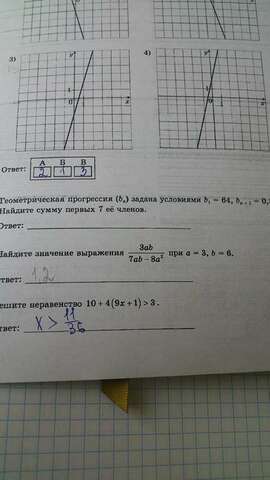 3)
4)
y
y
1
1
0 1 x
0 1 x
Ответ: А Б В
2 1 3
Геометрическая прогрессия (bₙ) задана условиями b₁ = 64, bₙ₊₁ = 0,
Найдите сумму первых 7 её членов.
Ответ:
Найдите значение выражения 3ab / 7ab – 8a² при a = 3, b = 6.
Ответ: 1,2
ешите неравенство 10 + 4(9x + 1) > 3.
твет: x > 11/36